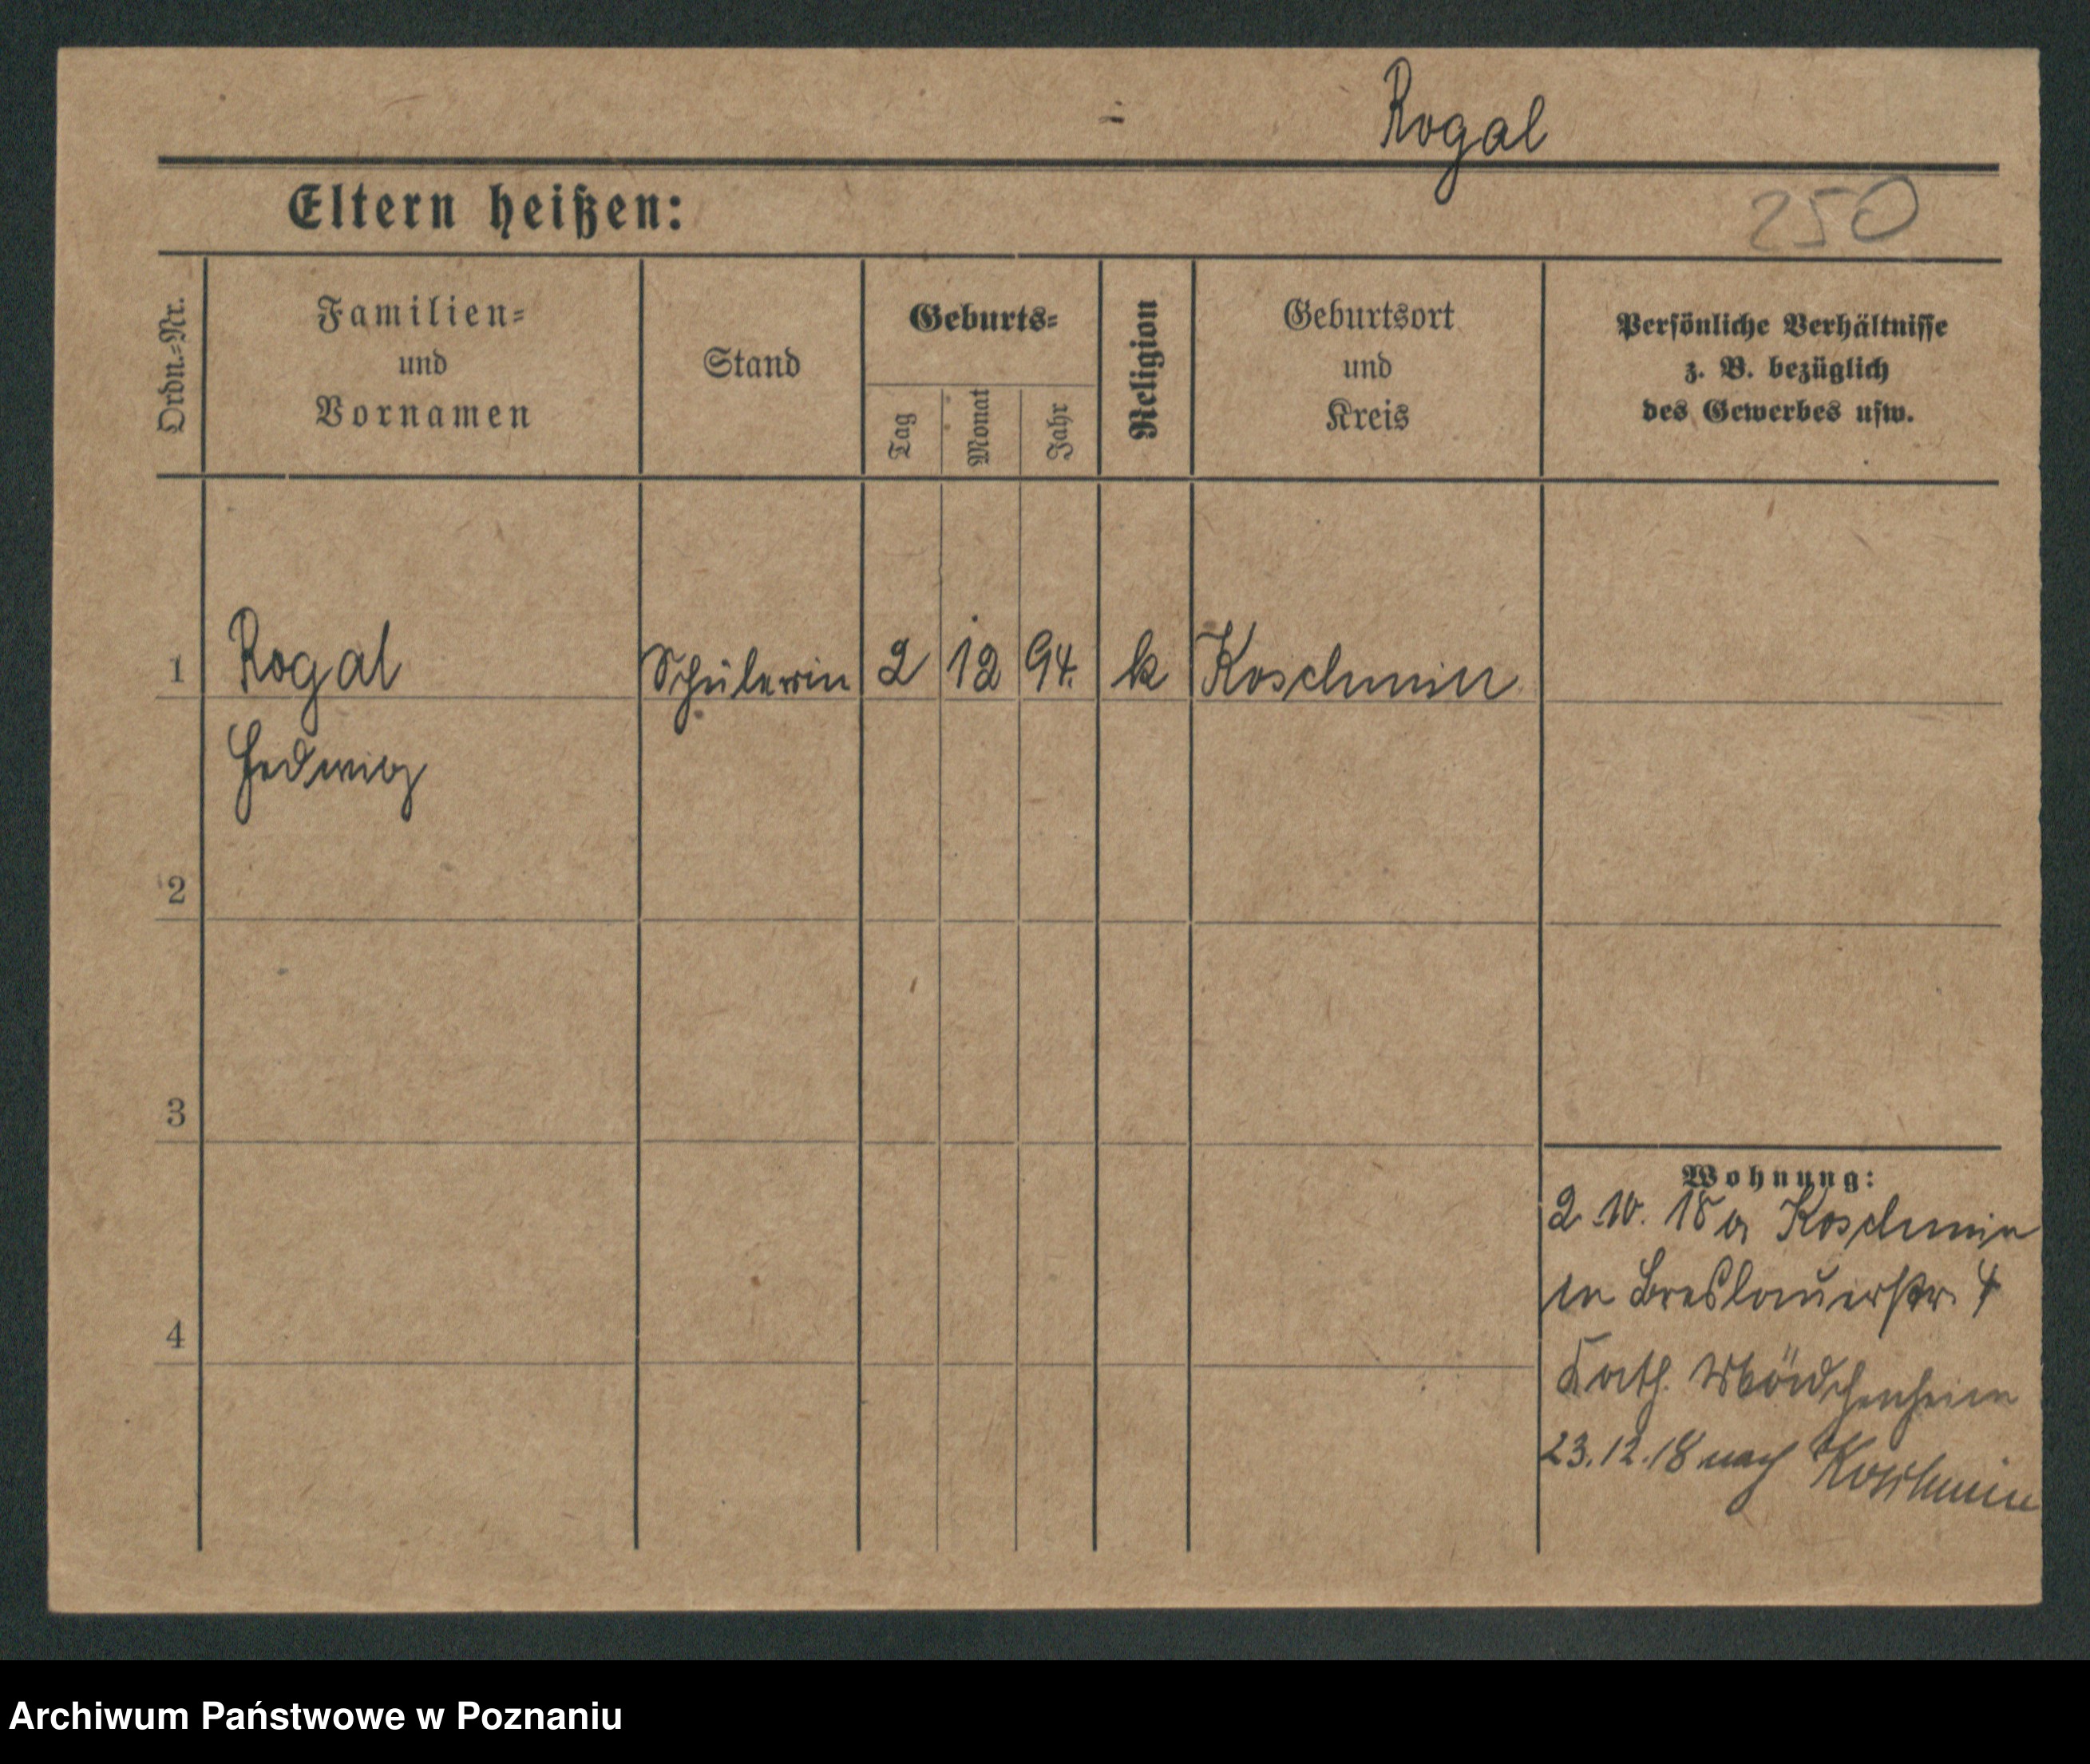 Rogal
Eltern heißen:
250
Ordn.-Nr.
Familien-
und
Vornamen
Stand
Geburts-
Tag
Monat
Jahr
Religion
Geburtsort
und
Kreis
Persönliche Verhältnisse
z. B. bezüglich
des Gewerbes usw.
1 Rogal Schülerin 2 12 94. k Koschmin
Hedwig
2
3
4
Wohnung:
2.10.18 a Koschmin
in Breslauerstr. 4
Kath. Mädchenheim
23.12.18 nach Koschmin
Archiwum Państwowe w Poznaniu